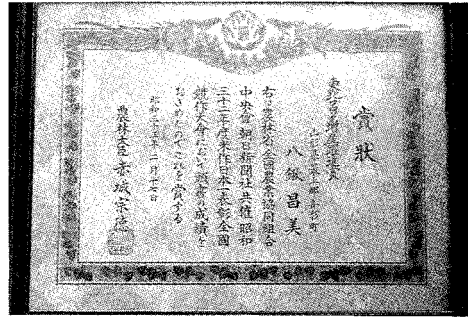 賞状
八鍬昌美
右は農林省全国農業協同組合
中央会朝日新聞社共催昭和
三十二年度米作日本一表彰全国
耕作大会において頭書の成績を
おさめたのでこれを賞する
昭和三十三年一月十七日
農林大臣 赤城宗徳